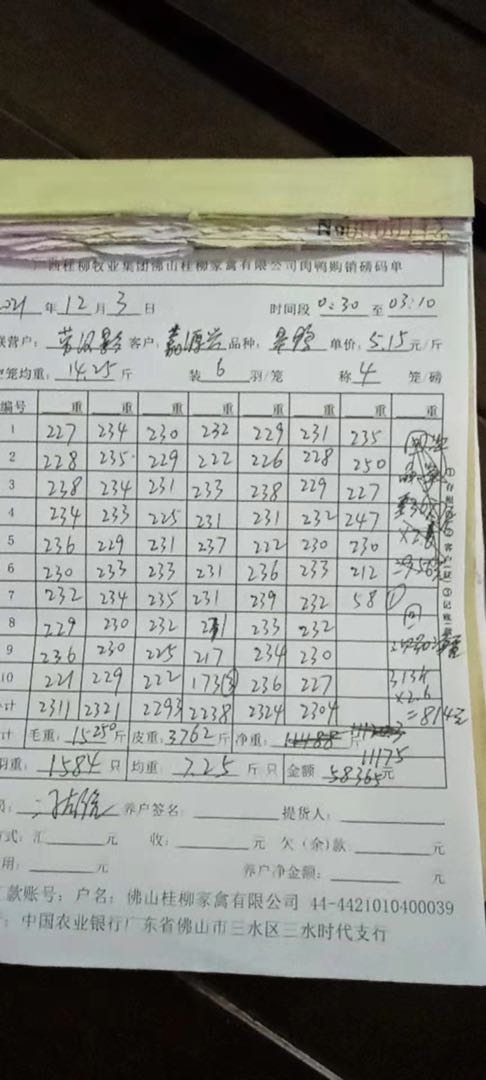 No
西桂柳牧业集团佛山桂柳家禽有限公司肉鸭购销磅码单
2021 年 12 月 3 日 时间段 0:30 至 03:10
联营户: 客户: 嘉源兴 品种: 单价: 5.15 元/斤
笼均重: 14.25 斤 装 6 羽/笼 称 4 笼/磅
编号 重 重 重 重 重 重 重 重
1 227 234 230 232 229 231 235
2 228 235 229 222 226 228 250
3 238 234 231 233 238 229 227
4 234 233 225 231 231 232 247
5 236 229 231 237 222 230 230
6 230 233 233 231 236 233 212
7 232 234 235 231 239 232 58 ①
8 229 230 232 233 232 回
9 236 230 225 217 234 230
10 221 229 222 173③ 236 227 313斤
×2.6
计 2311 2321 2293 2238 2324 2304 =814元
计 毛重: 15250 斤 皮重: 3762 斤 净重: 斤
11175
羽重: 1584 只 均重: 7.25 斤/只 金额 58365 元
员: 养户签名: 提货人:
方式: 汇 元 收: 元 欠(余)款 元
用: 元 养户净金额: 元
款账号: 户名: 佛山桂柳家禽有限公司 44-4421010400039
: 中国农业银行广东省佛山市三水区三水时代支行